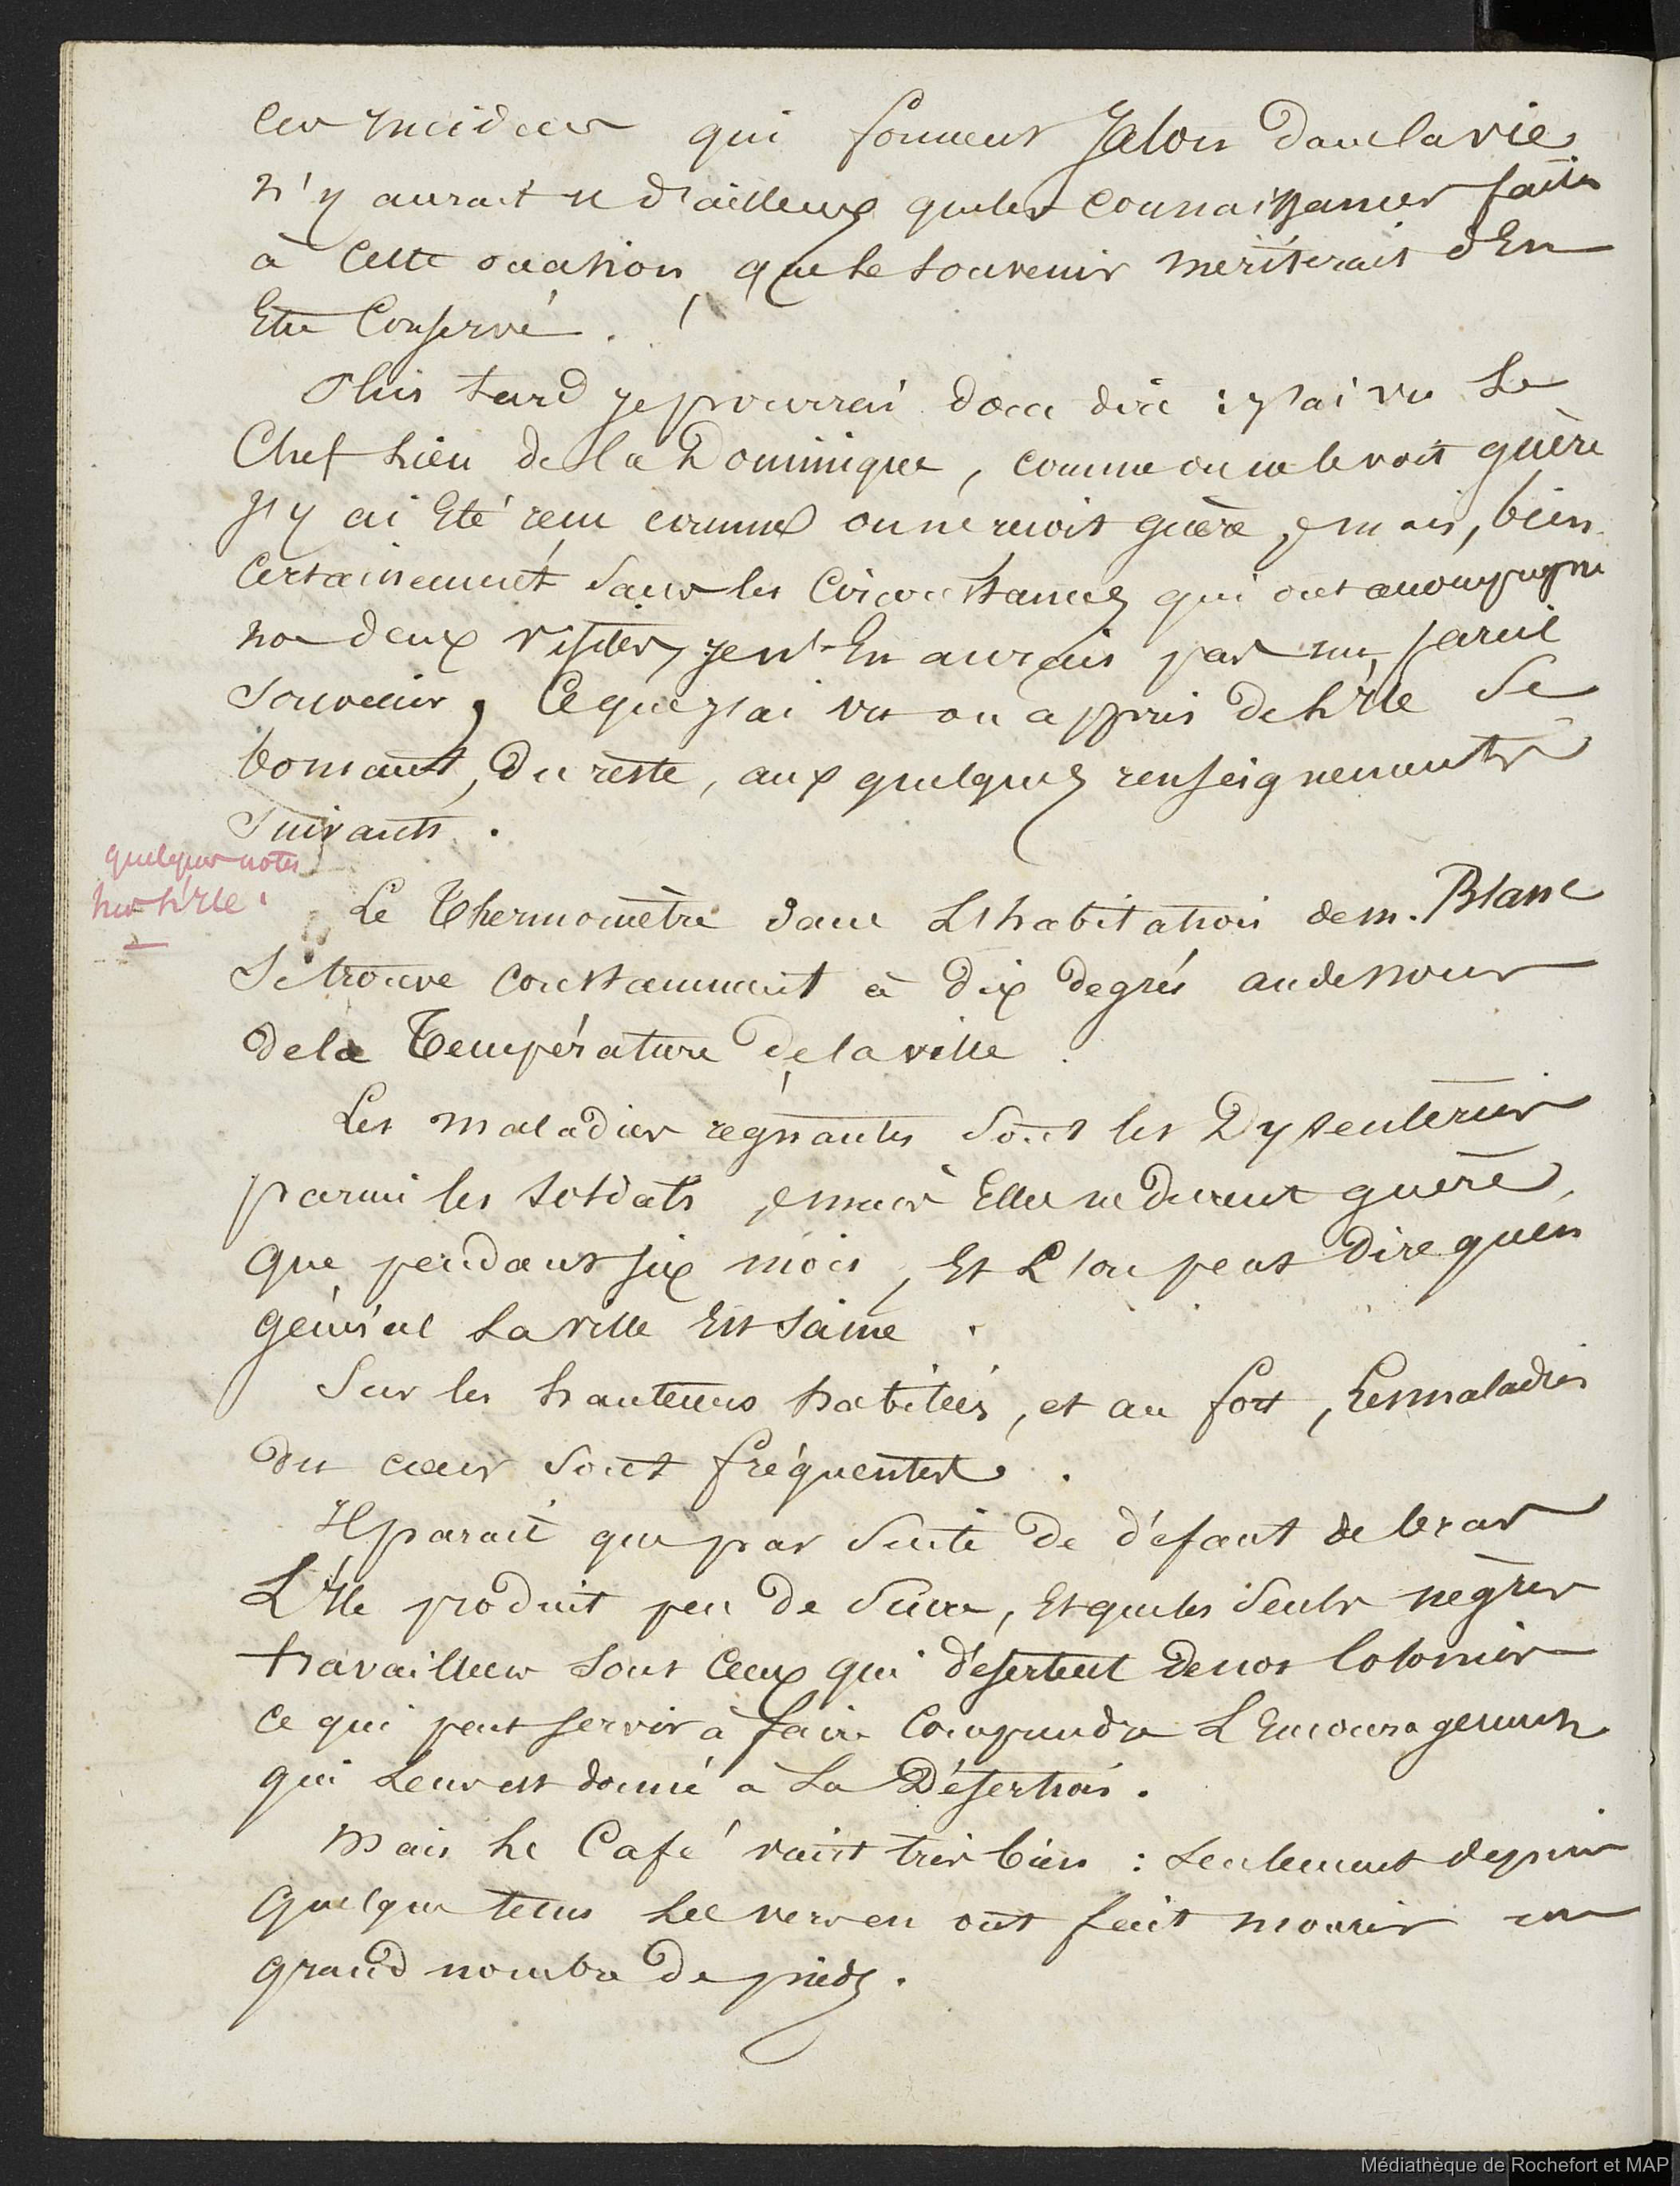 ces incidens qui forment Jalon dans la vie
n'y aurait il d'ailleurs que les connaissances faites
à cette occasion, que le souvenir mériterait d'En
Etre Conservé.
Plus tard je pourrai donc dire : j'ai vu Le
Chef Lieu de la Dominique, comme on ne le voit guère
J'y ai Eté reçu comme on ne reçoit guère, mais, bien
Certainement sans les Circonstances qui ont accompagné
nos deux visites, je n'En aurais pas un pareil
souvenir, Ce que j'ai vu ou appris de L'Ile se
bornant, Du reste, aux quelques renseignements
suivants.
quelques notes
sur L'Ile.
Le Thermomètre dans L'habitation de m. Blanc
se trouve constamment à dix degrés au dessous
de la Température de la ville.
Les maladies régnantes sont les Dyssenteries
parmi les soldats, mais Elles ne durent guère,
que pendant six mois, Et L'on peut Dire qu'en
général La ville Est saine.
Sur les hauteurs habitées, et au fort, Les maladies
du cœur sont fréquentes.
Il parait que par suite de défaut de bras
L'Ile produit peu de sucre, Et que les seuls nègres
travailleurs sont Ceux qui désertent de nos Colonies
ce qui peut servir à faire Comprendre L'Encouragement
qui Leur est donné à La Désertion.
Mais Le Café vient très bien : seulement depuis
quelque tems Les vers en ont fait mourir un
grand nombre de pieds.
Médiathèque de Rochefort et MAP